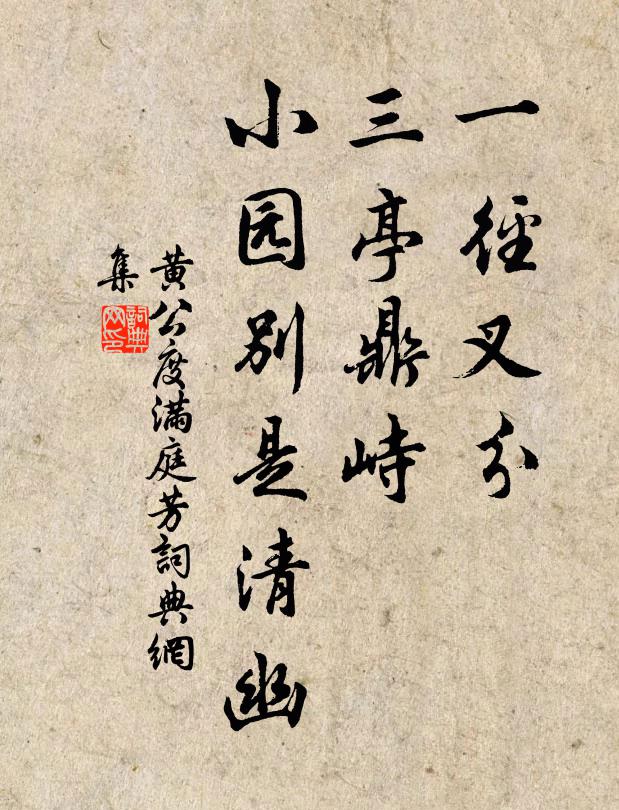 一徑叉分
三亭鼎峙
小园別是清幽
黄公度滿庭芳詞典網
集
詞典
网印